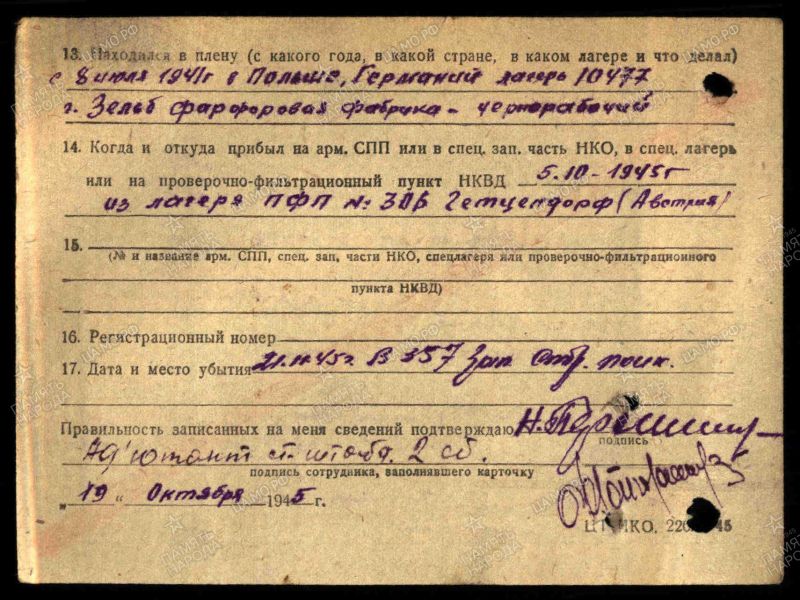 13. Находился в плену (с какого года, в какой стране, в каком лагере и что делал)
с 8 июля 1941г в Польше, Германий лагерь 10477
г. Зельб фарфоровая фабрика - чернорабочий
14. Когда и откуда прибыл на арм. СПП или в спец. зап. часть НКО, в спец. лагерь
или на проверочно-фильтрационный пункт НКВД 5.10-1945г
из лагеря ПФП № 306 Гетцендорф (Австрия)
15.
(№ и название арм. СПП, спец. зап. части НКО, спецлагеря или проверочно-фильтрационного
пункта НКВД)
16. Регистрационный номер
17. Дата и место убытия 21.11.45г. В 357 Зап. Стр. полк.
Правильность записанных на меня сведений подтверждаю Н.
подпись
Ад'ютант ст. штаба 2 сб.
подпись сотрудника, заполнявшего карточку
„19“ Октября 1945 г.
ЦТ НКО, 45